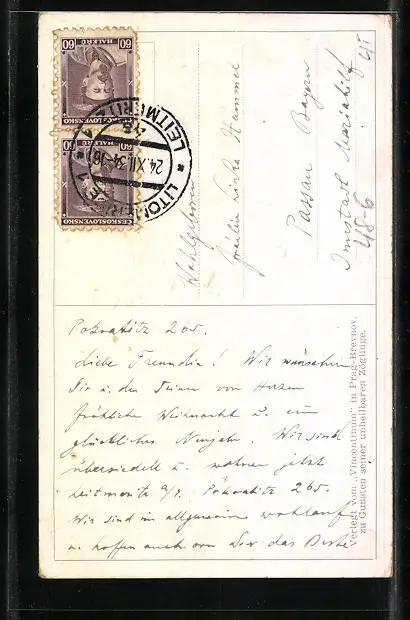 60 60
HALERU
ČESKOSLOVENSKO
60 60
HALERU
ČESKOSLOVENSKO
LEITMERITZ
24.XII.34-16
LITOMĚŘICE 1
Wohlgeboren
Fräulein Hammel
Passau Bayern
Innstadt Mariahilf
48-6
Pokratitz 265.
Liebe Freundin! Wir wünschen
Dir u. den Deinen von Herzen
fröhliche Weihnacht u. ein
glückliches Neujahr. Wir sind
übersiedelt u. wohnen jetzt
Leitmeritz a/E. Pokratitz 265.
Wir sind im allgemeinen wohlauf
u. hoffen auch von Dir das Beste
Verlegt vom „Vincentinum" in Prag-Břevnov,
zu Gunsten seiner unheilbaren Zöglinge.